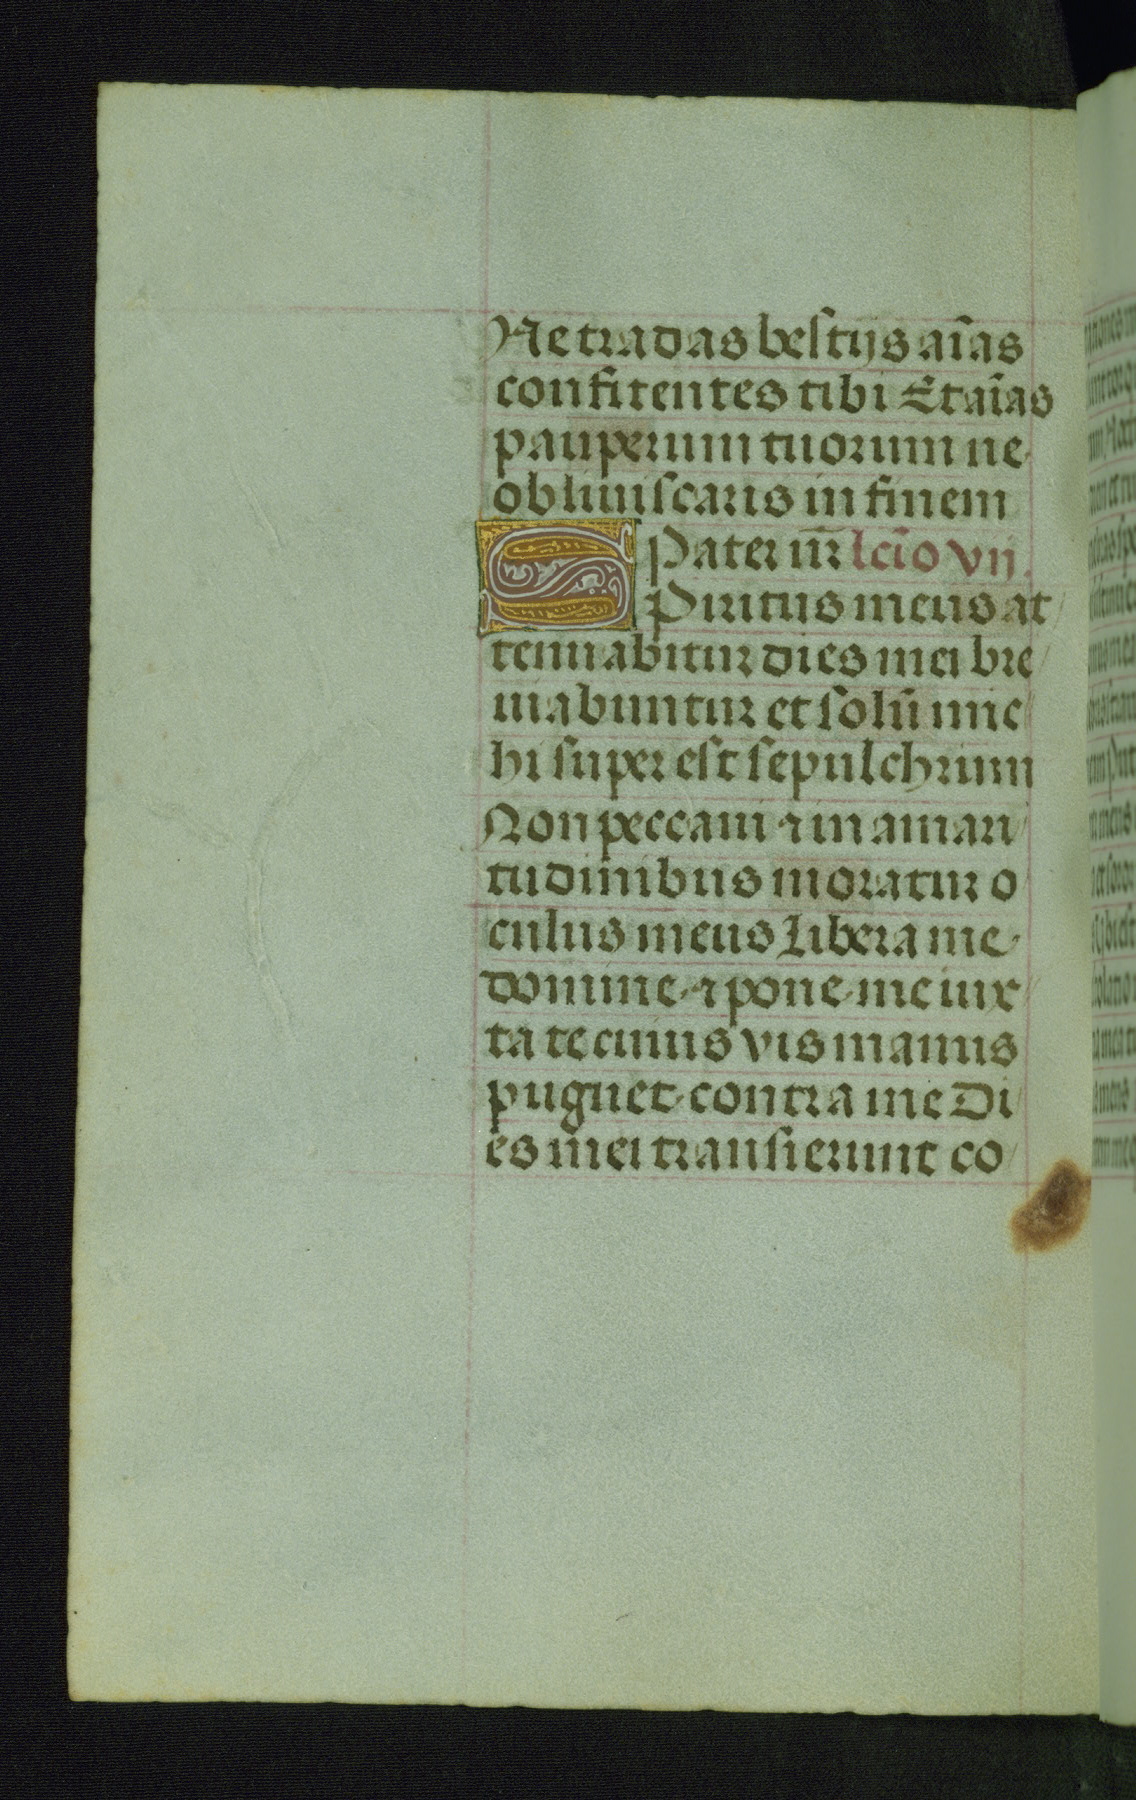 Ne tradas bestijs aīas
confitentes tibi Et aīas
pauperum tuorum ne
obliuiscaris in finem
Pater nr̄ lcīo vij.
SPiritus meus at
tenuabitur dies mei bre
uiabuntur et solū mic
hi super est sepulchrum
Non peccaui ⁊ in amari
tudinibus moratur o
culus meus Libera me
domine ⁊ pone me iux
ta te cuius vis manus
pugnet contra me Di
es mei transierunt co